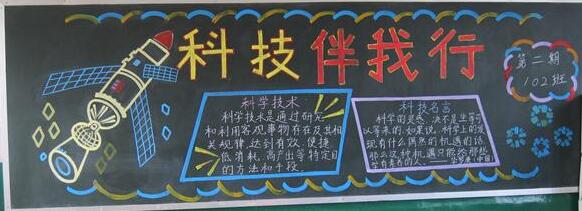 科技伴我行
第二期
102班
科学技术
科学技术是通过研究
和利用客观事物存在及其相
关规律,达到有效、便捷、
低消耗、高产出等特定目
的方法和手段。
科技名言
科学的灵感,决不是坐等可
以等来的。如果说,科学上的发
现有什么偶然的机遇的话,
那么这种机遇只能给那些